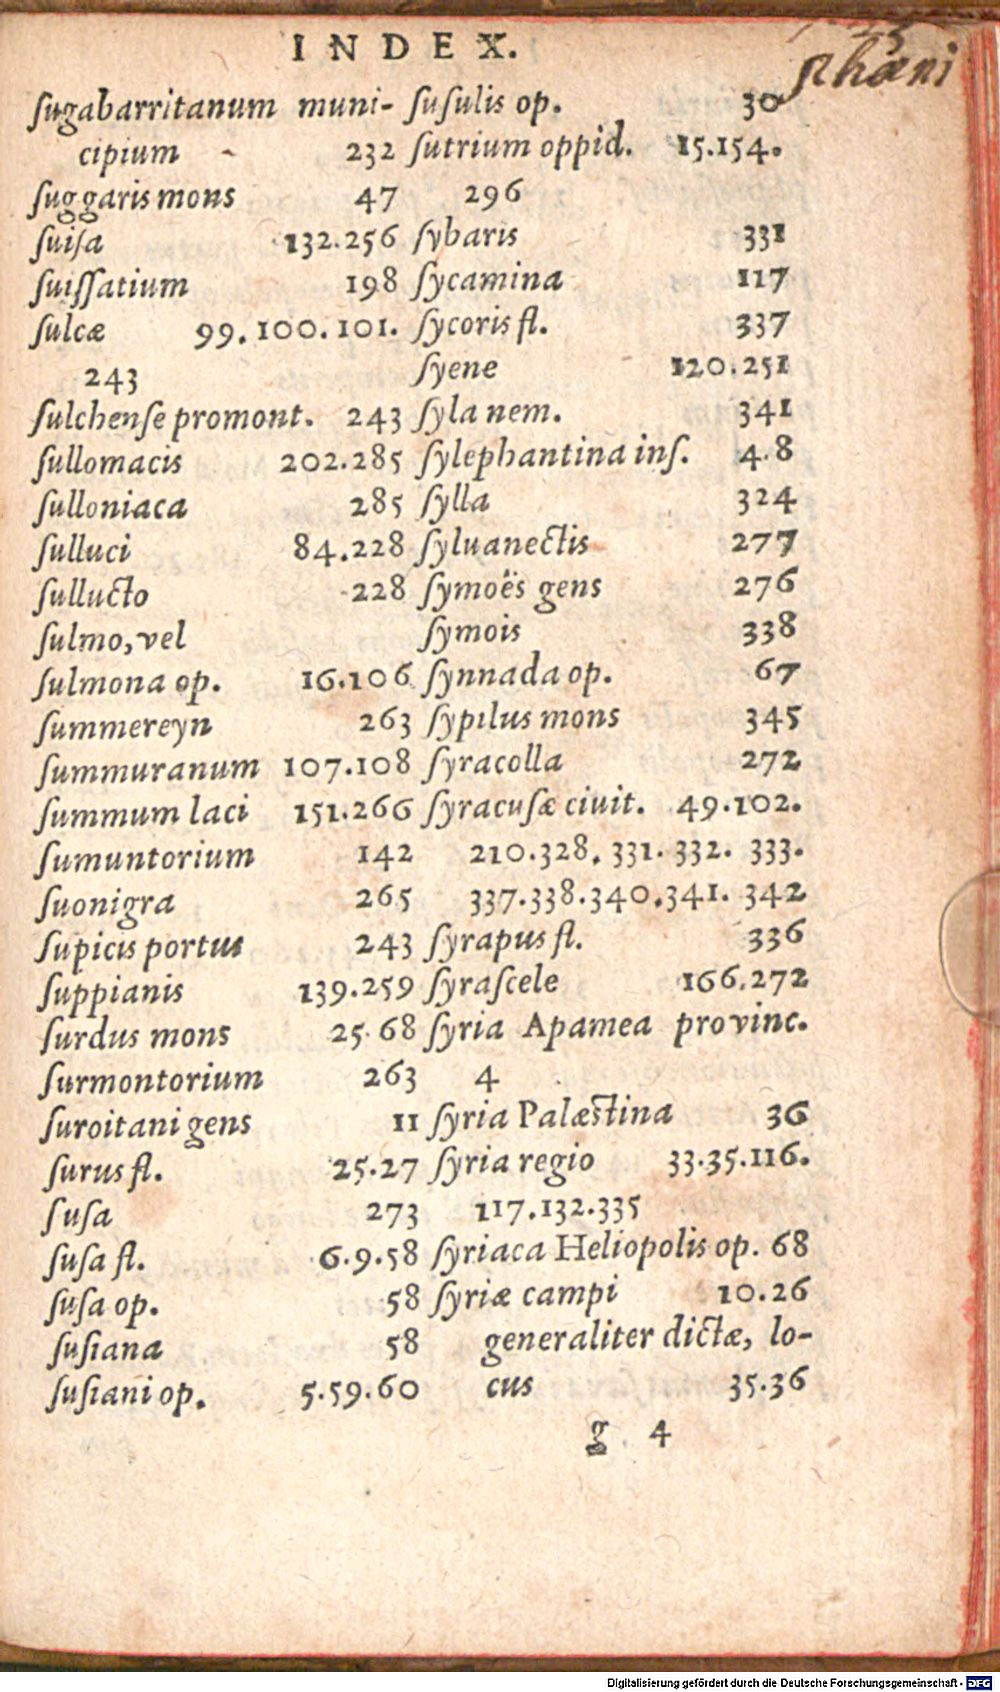 INDEX.
ſugabarritanum muni-
cipium 232
ſuggaris mons 47
ſuiſa 132.256
ſuiſſatium 198
ſulcæ 99.100.101.
243
ſulchenſe promont. 243
ſullomacis 202.285
ſulloniaca 285
ſulluci 84.228
ſullucto 228
ſulmo, vel
ſulmona op. 16.106
ſummereyn 263
ſummuranum 107.108
ſummum laci 151.266
ſumuntorium 142
ſuonigra 265
ſupicis portus 243
ſuppianis 139.259
ſurdus mons 25.68
ſurmontorium 263
ſuroitani gens 11
ſurus fl. 25.27
ſuſa 273
ſuſa fl. 6.9.58
ſuſa op. 58
ſuſiana 58
ſuſiani op. 5.59.60
ſuſulis op. 30
ſutrium oppid. 15.154.
296
ſybaris 331
ſycamina 117
ſycoris fl. 337
ſyene 120.251
ſyla nem. 341
ſylephantina inſ. 4.8
ſylla 324
ſyluanectis 277
ſymoës gens 276
ſymois 338
ſynnada op. 67
ſypilus mons 345
ſyracolla 272
ſyracuſæ ciuit. 49.102.
210.328. 331. 332. 333.
337.338.340.341. 342
ſyrapus fl. 336
ſyraſcele 166.272
ſyria Apamea provinc.
4
ſyria Palæſtina 36
ſyria regio 33.35.116.
117.132.335
ſyriaca Heliopolis op. 68
ſyriæ campi 10.26
generaliter dictæ, lo-
cus 35.36
g 4
Digitalisierung gefördert durch die Deutsche Forschungsgemeinschaft - DFG